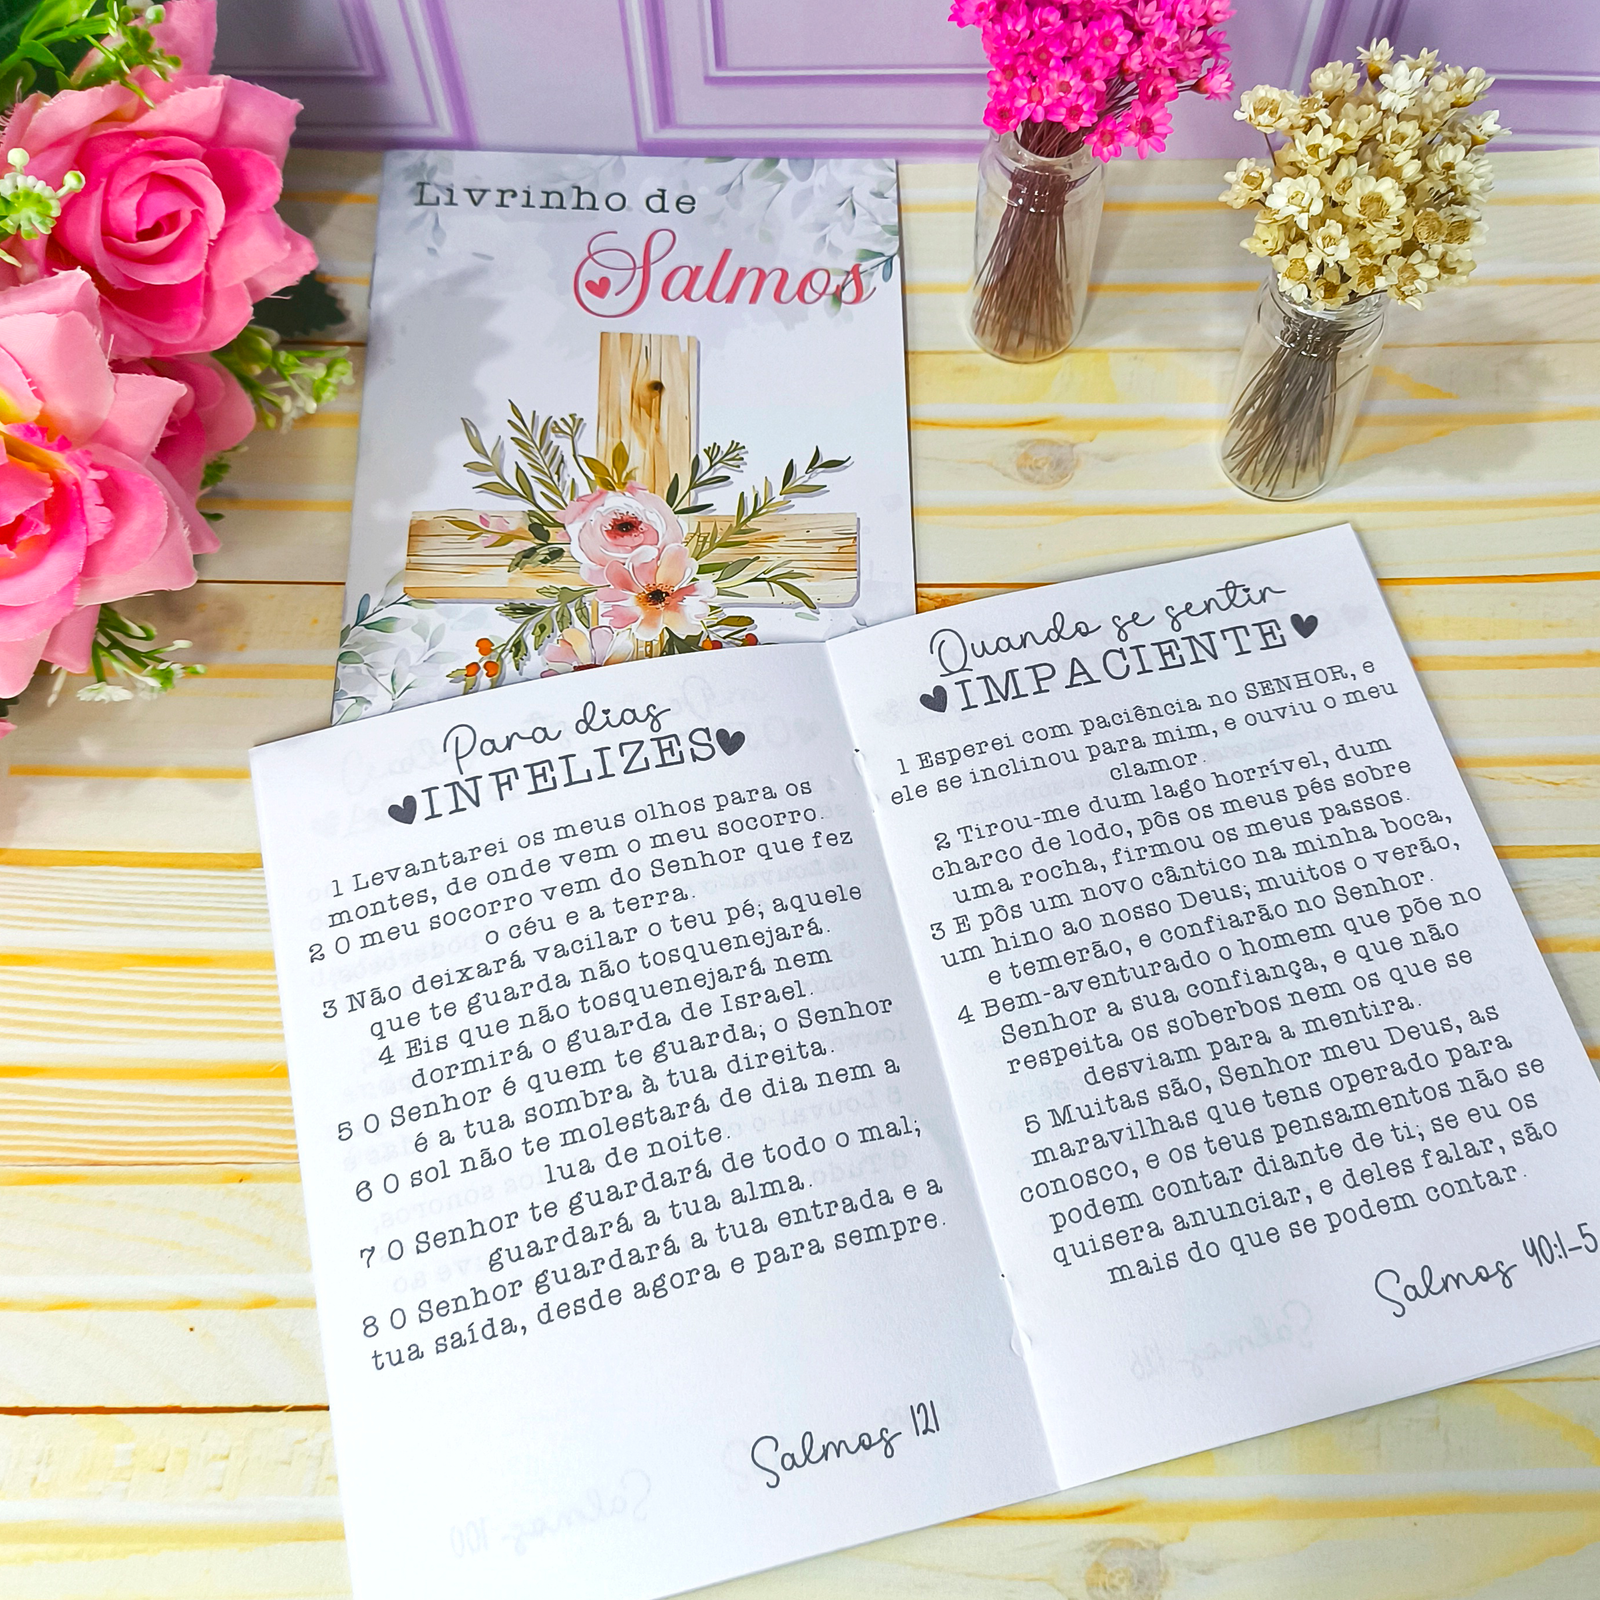 Livrinho de
Salmos
Para dias
INFELIZES
1 Levantarei os meus olhos para os
montes, de onde vem o meu socorro.
2 O meu socorro vem do Senhor que fez
o céu e a terra.
3 Não deixará vacilar o teu pé; aquele
que te guarda não tosquenejará.
4 Eis que não tosquenejará nem
dormirá o guarda de Israel.
5 O Senhor é quem te guarda; o Senhor
é a tua sombra à tua direita.
6 O sol não te molestará de dia nem a
lua de noite.
7 O Senhor te guardará de todo o mal;
guardará a tua alma.
8 O Senhor guardará a tua entrada e a
tua saída, desde agora e para sempre.
Salmos 121
Quando se sentir
IMPACIENTE
1 Esperei com paciência no SENHOR, e
ele se inclinou para mim, e ouviu o meu
clamor.
2 Tirou-me dum lago horrível, dum
charco de lodo, pôs os meus pés sobre
uma rocha, firmou os meus passos.
3 E pôs um novo cântico na minha boca,
um hino ao nosso Deus; muitos o verão,
e temerão, e confiarão no Senhor.
4 Bem-aventurado o homem que põe no
Senhor a sua confiança, e que não
respeita os soberbos nem os que se
desviam para a mentira.
5 Muitas são, Senhor meu Deus, as
maravilhas que tens operado para
conosco, e os teus pensamentos não se
podem contar diante de ti; se eu os
quisera anunciar, e deles falar, são
mais do que se podem contar.
Salmos 40:1-5